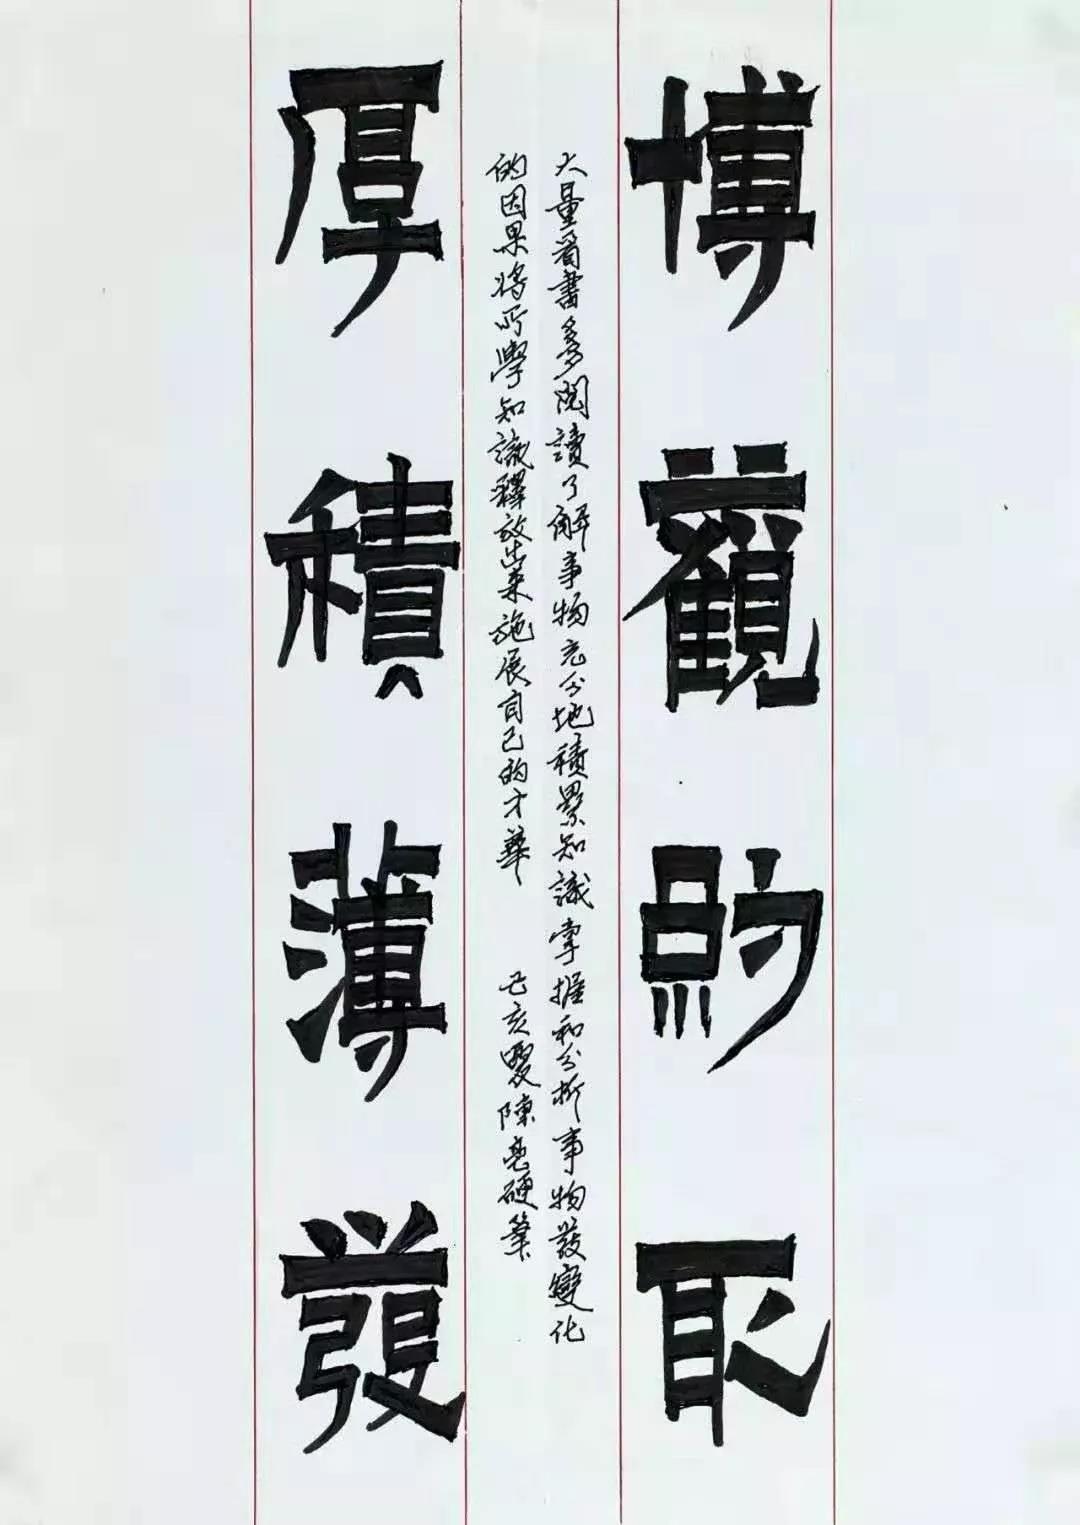 博觀約取
大量看書多閱讀了解事物充分地積累知識掌握和分析事物發變化
的因果將所學知識釋放出來施展自己的才華 己亥夏陳亮硬筆
厚積薄發